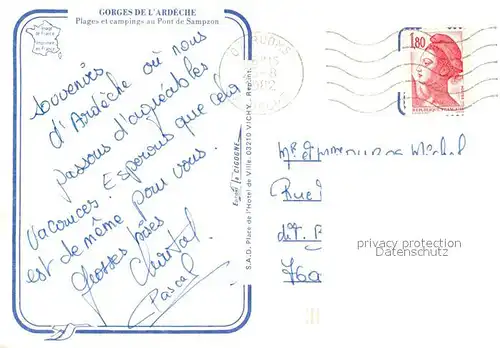 GORGES DE L'ARDÈCHE
Plages et campings au Pont de Sampzon
Image
de France
Imprimée
en France
Souvenirs
d'Ardèche où nous
passons d'agréables
Vacances. Esperons que cela
est de même pour vous.
Grosses bises
Chantal
Pascal
Edition "La CIGOGNE"
S.A.D. Place de l'Hotel de Ville. 03210 VICHY. Reprint.
1982
1,80
Mr
Michel
Rue
76
privacy protection
Datenschutz